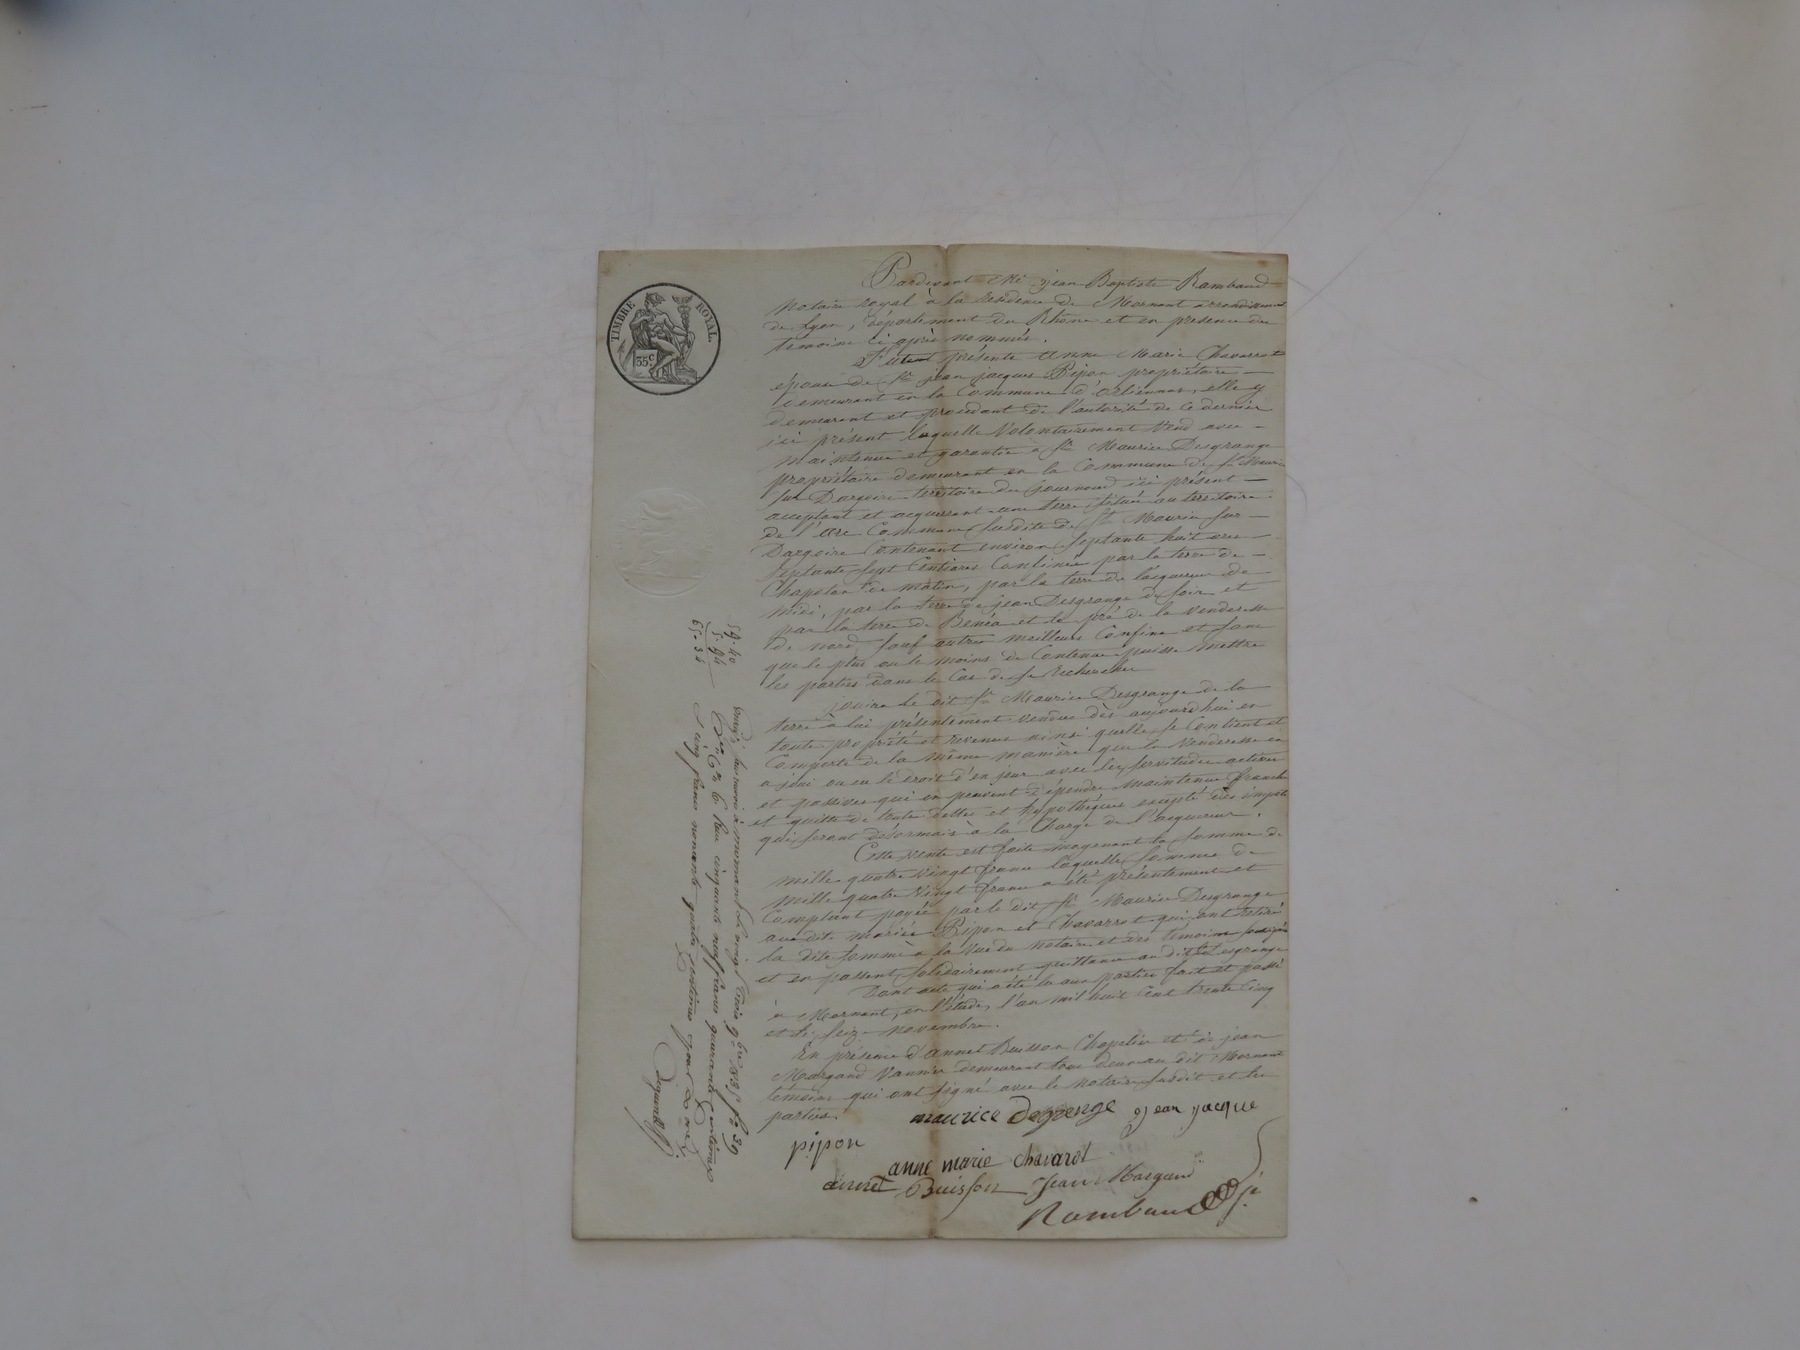 TIMBRE ROYAL.
35 c.
Pardevant Me jean Baptiste Rambaud
Notaire royal à la residence de Mornant arrondissement
de Lyon, département du Rhône et en presence des
témoins ci après nommés.
Fut présente Anne Marie Chavarrot
épouse de Sr jean jacques Pipon propriétaire
demeurant en la Commune d'orliennas, elle y
demeurant et procedant de l'autorité de ce dernier
ici présent laquelle Volontairement Vend avec
maintenue et garantie à Sr Maurice Desgrange
propriétaire demeurant en la Commune de St Maurice
sur Dargoire territoire du journoud ici présent
acceptant et acquerrant une terre située au territoire
de l'are Commune susdite de St Maurice sur
Dargoire Contenant environ septante huit ares
septante sept Centiares Confinée par la terre de
Chapelan de matin, par la terre de l'acquereur de
midi, par la terre de jean Desgrange de soir et
par la terre de Benéa et le pré de la venderesse
de nord, sauf autres meilleurs Confins et sans
que le plus ou le moins de Contenue puisse mettre
les parties dans le Cas de se rechercher
jouira le dit Sr Maurice Desgrange de la
terre à lui présentement vendue dès aujourdhui en
toute propriété et revenus ainsi quelle se Contient et
Comporte de la même manière que la Venderesse en
a joui ou eu le droit d'en jouir avec les servitudes actives
et passives qui en peuvent dépendre maintenue franche
et quitte de toute dettes et hypothèques excepté des impôts
qui seront désormais à la Charge de l'acquereur.
Cette vente est faite moyenant la somme de
mille quatre vingt francs laquelle somme de
mille quatre Vingt francs a été présentement et
Comptant payée par le dit Sr Maurice Desgrange
aux dits mariés Pipon et Chavarrot qui ont retiré
la dite somme à la vue du notaire et des témoins
et en passent solidairement quittance au dit Desgrange
Dont acte qui a été lu aux parties fait et passé
à Mornant, en l'étude, l'an mil huit Cent trente Cinq
et le seize novembre.
En présence d'annet Buisson Chapelier et de jean
Margand Vannier demeurant tous deux au dit Mornant
témoins qui ont signé avec le notaire susdit et les
parties.
maurice degrenge jean jacque
pipon
anne marie chavarot
annet Buisson Jean Margand
Rambaud
59.40
5.94
65.34
à mornant le vingt trois 9bre 1835 fo 39
Reçu cinquante neuf francs quarante centimes
cinq francs nonante quatre centimes pour